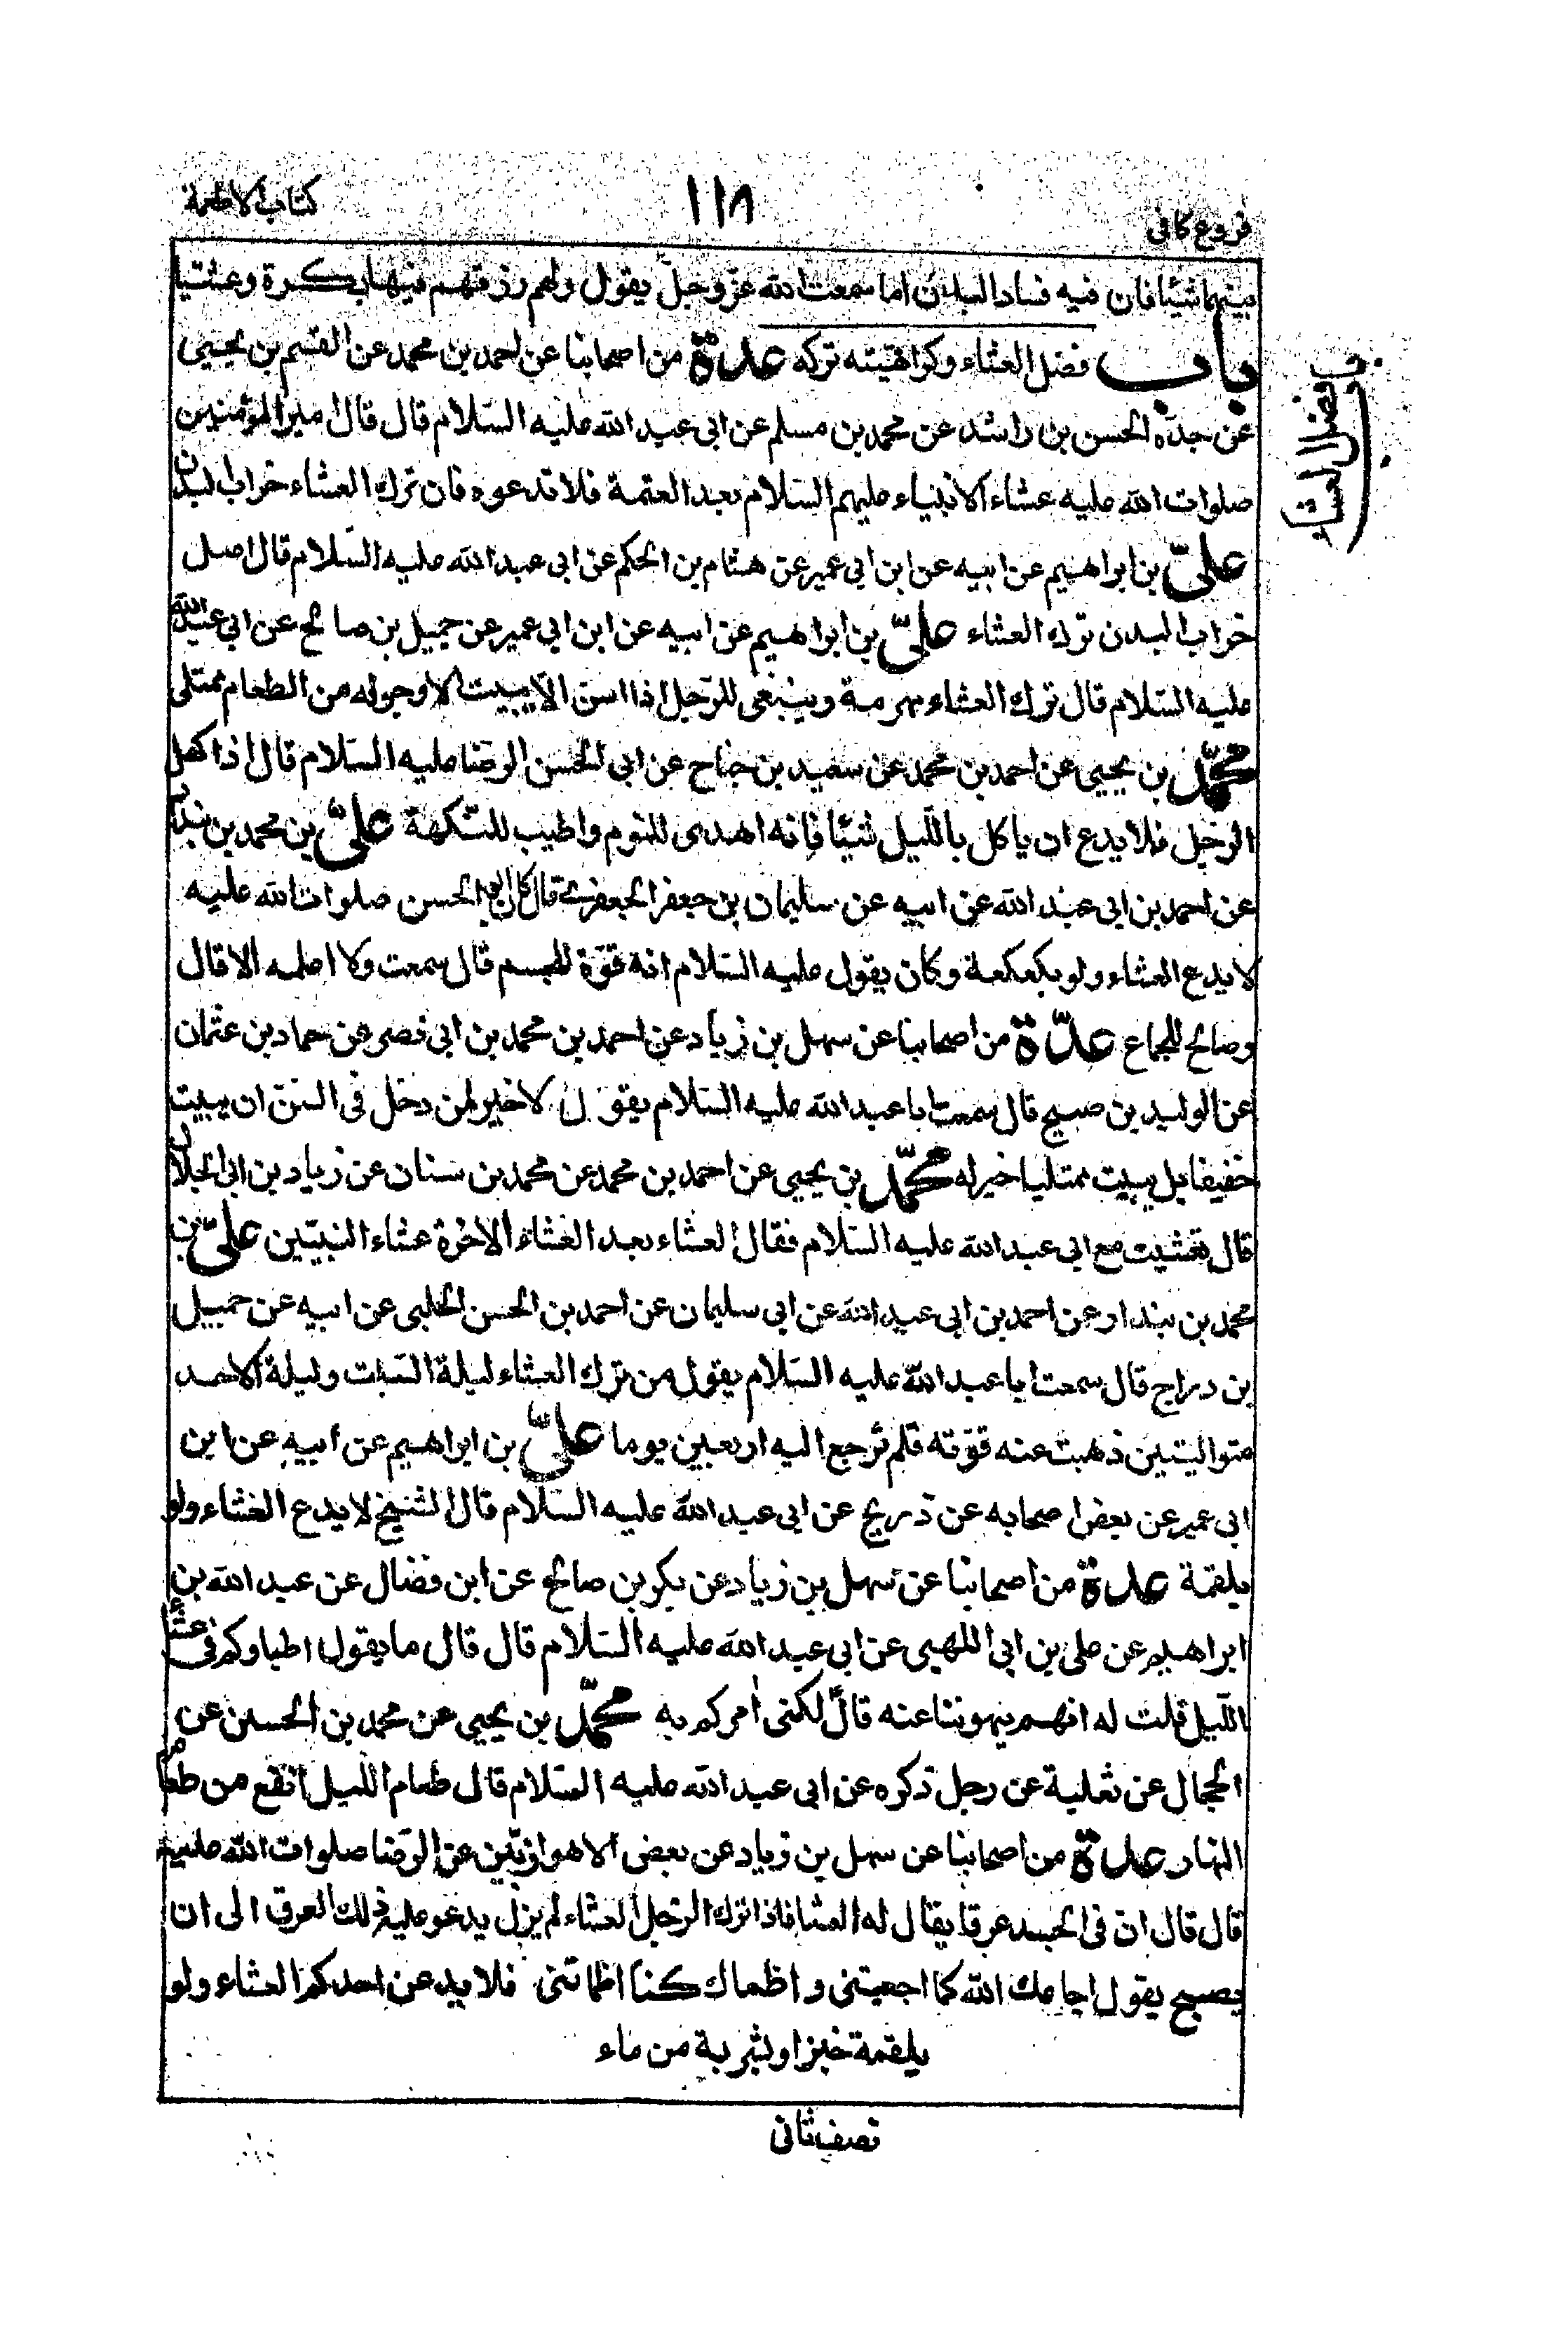 فروع كافى
١١٨
كتاب الاطعمة
بينهما شيئا فان فيه فساد البدن اما سمعت الله عز وجل يقول ولهم رزقهم فيها بكرة وعشيا
باب فضل العشاء وكراهيته تركه عدة من اصحابنا عن احمد بن محمد عن القسم بن يحيى
فى فضل العشاء
عن جده الحسن بن راشد عن محمد بن مسلم عن ابى عبد الله عليه السلام قال قال امير المؤمنين
صلوات الله عليه عشاء الانبياء عليهم السلام بعد العتمة فلا تدعوه فان ترك العشاء خراب البدن
علىّ بن ابراهيم عن ابيه عن ابن ابى عمير عن هشام بن الحكم عن ابى عبد الله عليه السلام قال اصل
خراب البدن ترك العشاء علىّ بن ابراهيم عن ابيه عن ابن ابى عمير عن جميل بن صالح عن ابى عبد الله
عليه السلام قال ترك العشاء مهرمة وينبغى للرجل اذا اسن الا يبيت الا وجوفه من الطعام ممتلى
محمّد بن يحيى عن احمد بن محمد عن سعيد بن جناح عن ابى الحسن الرضا عليه السلام قال اذا كهل
الرجل فلا يدع ان ياكل بالليل شيئا فانه اهدى للنوم واطيب للنكهة علىّ بن محمد بن بندار
عن احمد بن ابى عبد الله عن ابيه عن سليمان بن جعفر الجعفرى قال كان ابو الحسن صلوات الله عليه
لا يدع العشاء ولو بكعكة وكان يقول عليه السلام انه قوّة للجسم قال سمعت ولا اعلمه الا قال
وصالح للجماع عدّة من اصحابنا عن سهل بن زياد عن احمد بن محمد بن ابى نصر عن حماد بن عثمان
عن الوليد بن صبيح قال سمعت ابا عبد الله عليه السلام يقول لا خير لمن دخل فى السن ان يبيت
خفيفا بل يبيت ممتليا خير له محمّد بن يحيى عن احمد بن محمد عن محمد بن سنان عن زياد بن ابى الحلال
قال تعشيت مع ابى عبد الله عليه السلام فقال العشاء بعد العشاء الاخرة عشاء النبيّين علىّ بن
محمد بن بندار عن احمد بن ابى عبد الله عن ابى سليمان عن احمد بن الحسن الحلبى عن ابيه عن جميل
بن دراج قال سمعت ابا عبد الله عليه السلام يقول من ترك العشاء ليلة السبت وليلة الاحد
متواليتين ذهبت عنه قوّته فلم ترجع اليه اربعين يوما علىّ بن ابراهيم عن ابيه عن ابن
ابى عمير عن بعض اصحابه عن ذريح عن ابى عبد الله عليه السلام قال الشيخ لا يدع العشاء ولو
بلقمة عدة من اصحابنا عن سهل بن زياد عن بكر بن صالح عن ابن فضال عن عبد الله بن
ابراهيم عن على بن ابى اللهبى عن ابى عبد الله عليه السلام قال قال ما يقول اطباوكم فى عشاء
الليل قلت له انهم ينهوننا عنه قال لكنى امركم به محمّد بن يحيى عن محمد بن الحسين عن
الحجال عن ثعلبة عن رجل ذكره عن ابى عبد الله عليه السلام قال طعام الليل انفع من طعام
النهار عدة من اصحابنا عن سهل بن زياد عن بعض الاهوازيّين عن الرضا صلوات الله عليه
قال قال ان فى الجسد عرقا يقال له العشا فاذا ترك الرجل العشاء لم يزل يدعو عليه ذلك العرق الى ان
يصبح يقول اجاعك الله كما اجعتنى واظماك كما اظماتنى فلا يدعن احدكم العشاء ولو
بلقمة خبز او بشربة من ماء
نصف ثانى